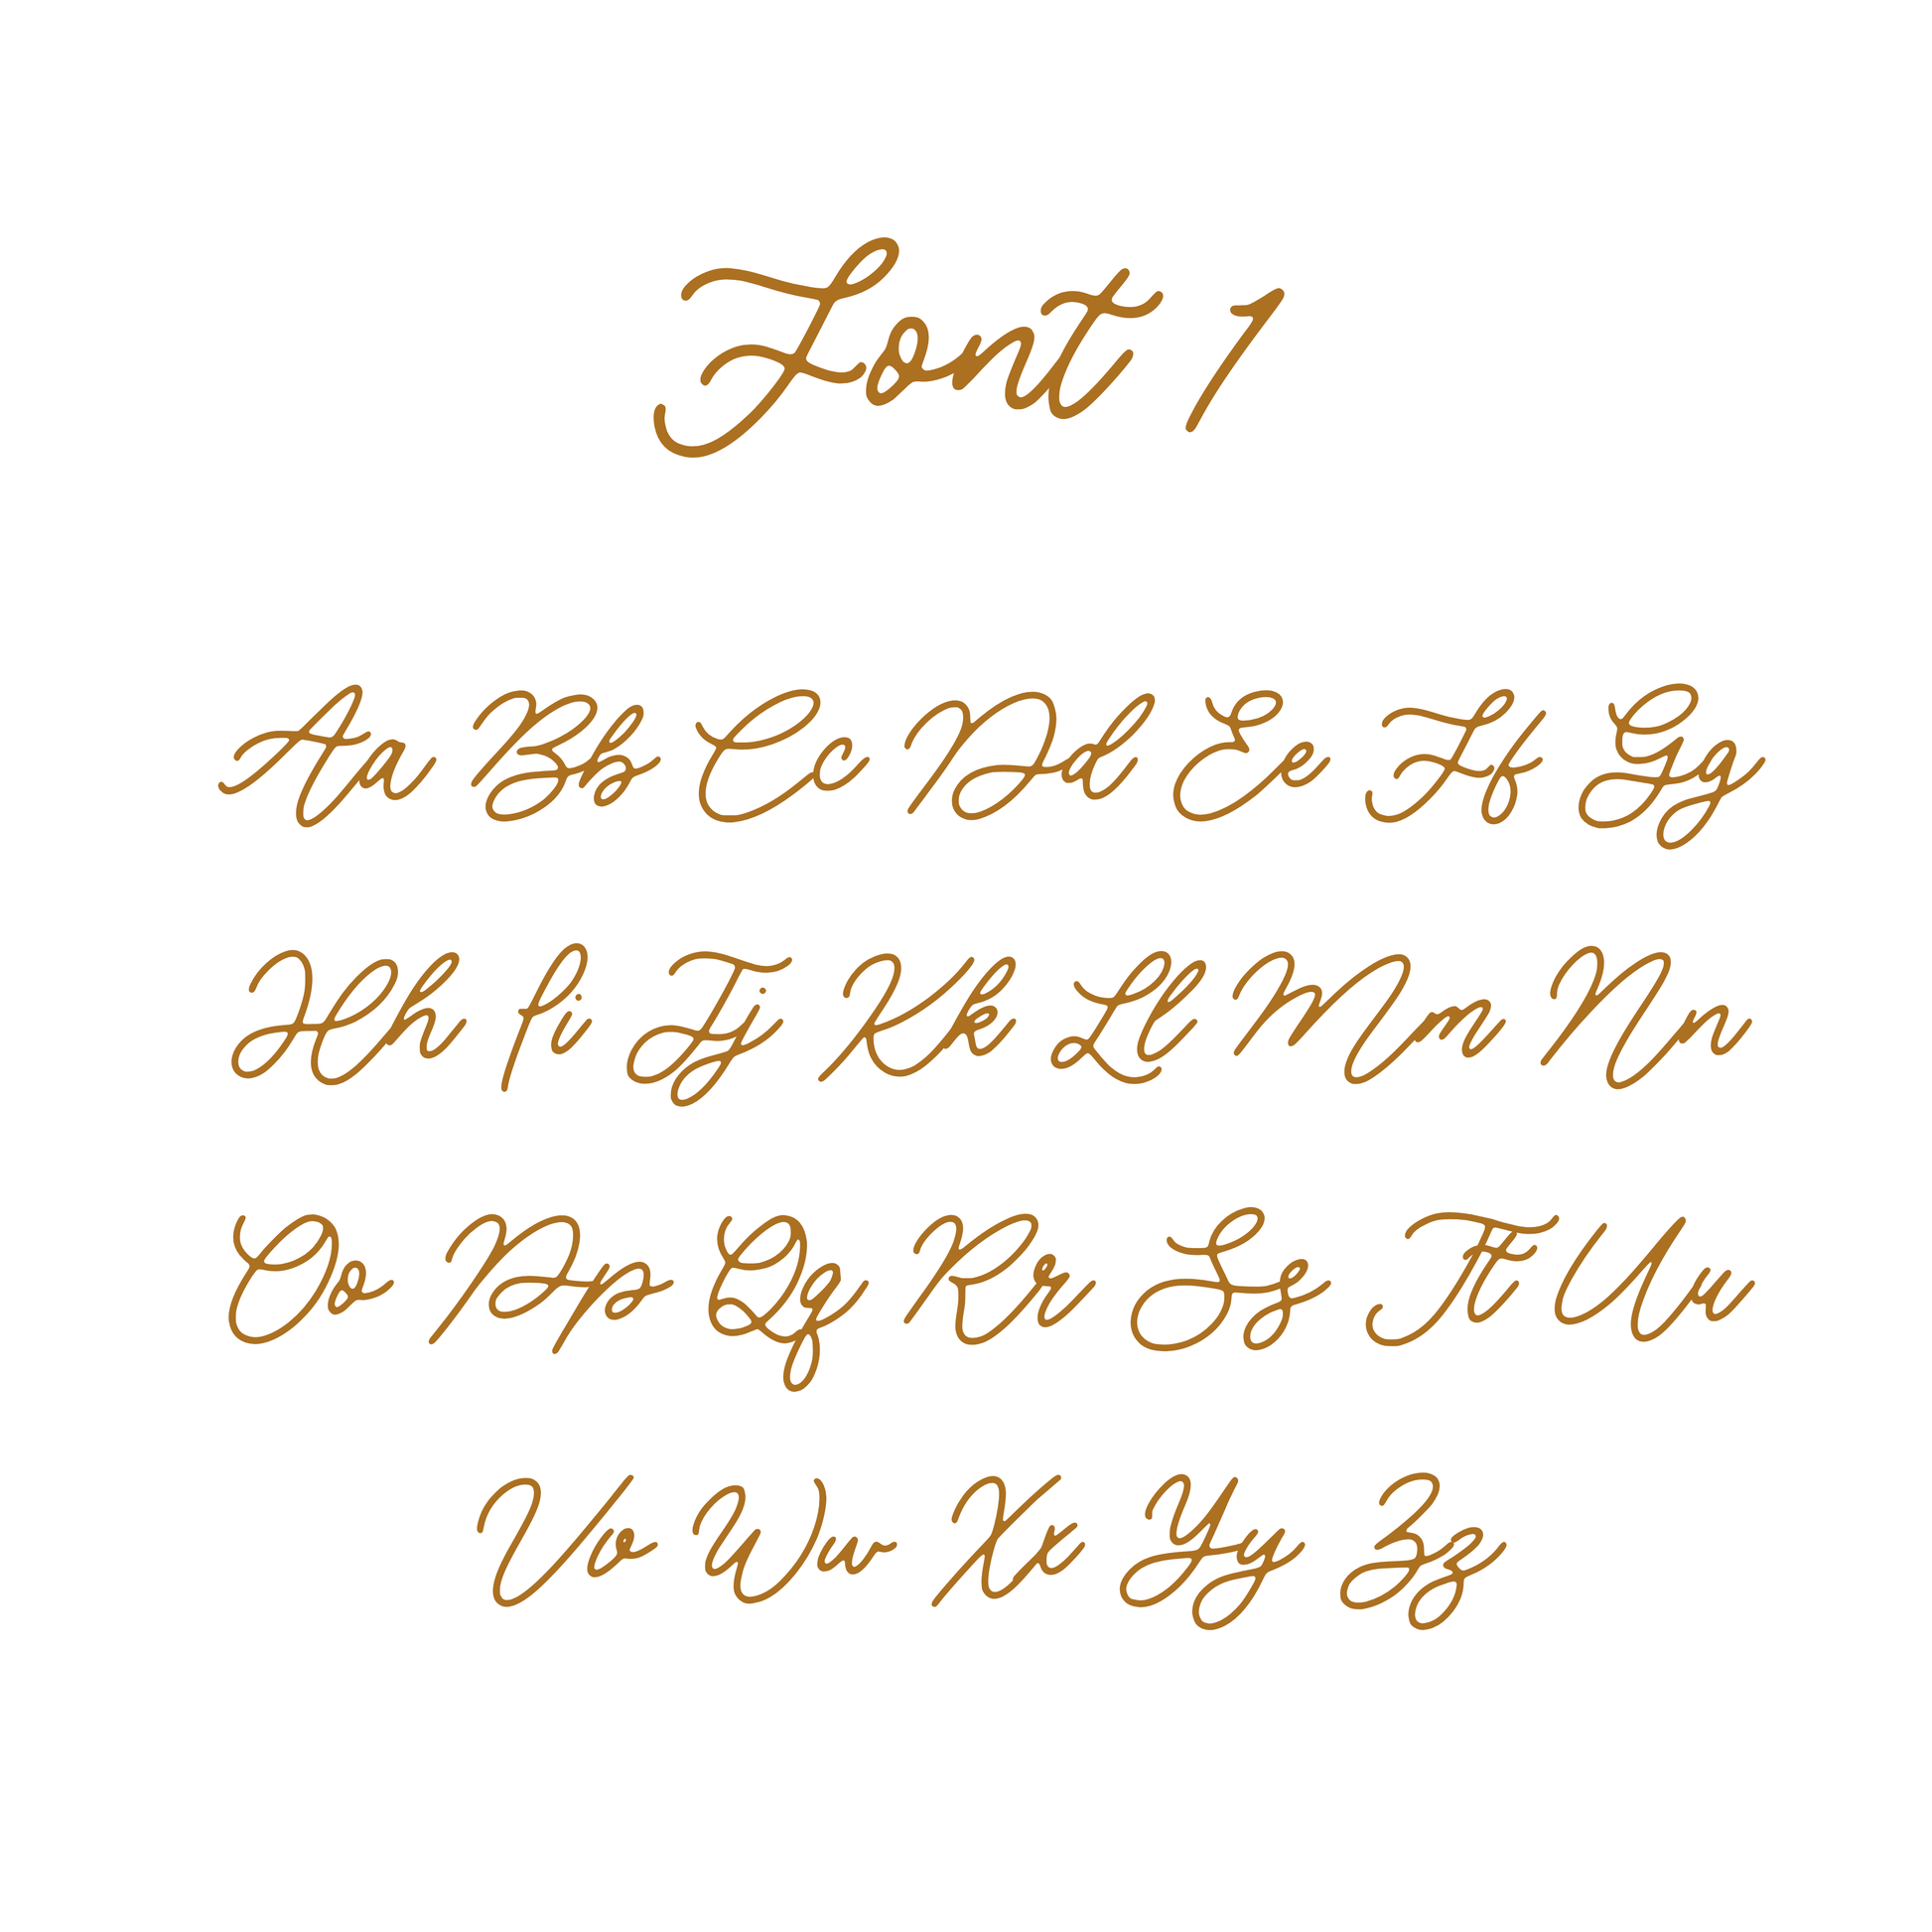 Font 1
Aa Bb Cc Dd Ee Ff Gg
Hh Ii Jj Kk Ll Mm Nn
Oo Pp Qq Rr Ss Tt Uu
Vv Ww Xx Yy Zz